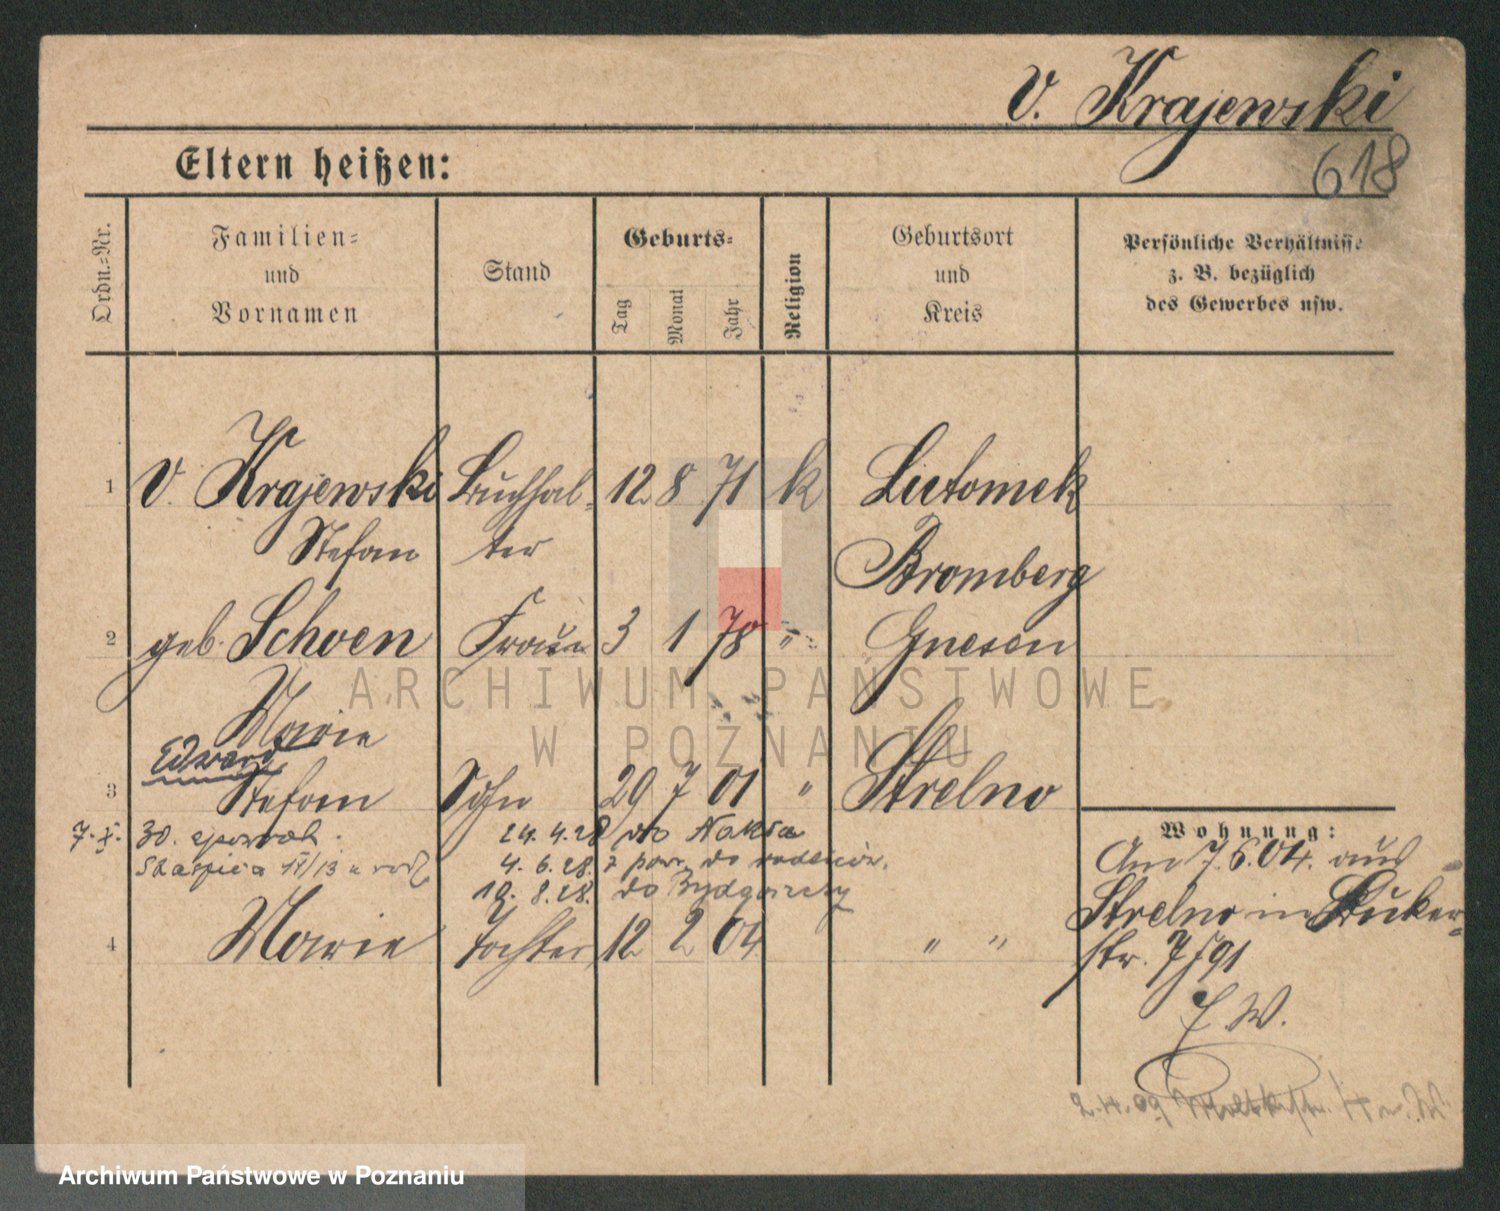 v. Krajewski
618
Eltern heißen:
Ordn.-Nr.
Familien-
und
Vornamen
Stand
Geburts-
Tag
Monat
Jahr
Religion
Geburtsort
und
Kreis
Persönliche Verhältnisse
z. B. bezüglich
des Gewerbes usw.
1 v. Krajewski Buchhal- 12 8 71 k
Stefan ter Bromberg
2 geb. Schoen Frau 3 1 78 " Gnesen
Marie
Edward
3 Stefan Sohn 29 7 01 " Strelno
7.X. 30. 24.4.28 do Nakła
4.6.28. z pow. do rodziców.
19.8.28. do Bydgoszczy
4 Marie Tochter 12 2 04 " "
Wohnung:
Am 7.6.04. aus
Strelno in
str.
J. W.
2.4.09
ARCHIWUM PAŃSTWOWE
W POZNANIU
Archiwum Państwowe w Poznaniu